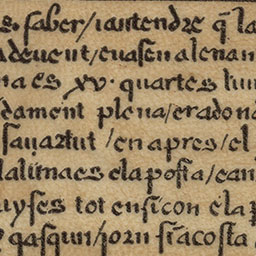 s. saber / i antendre q̃ la
adeuent / euasen alenan
na es xv. quartes lun
dament plena / eradona
sauartut / en apres / el
lalimaes ela possa / ean
uyses tot en si con ela p
qascun / iorn si acosta